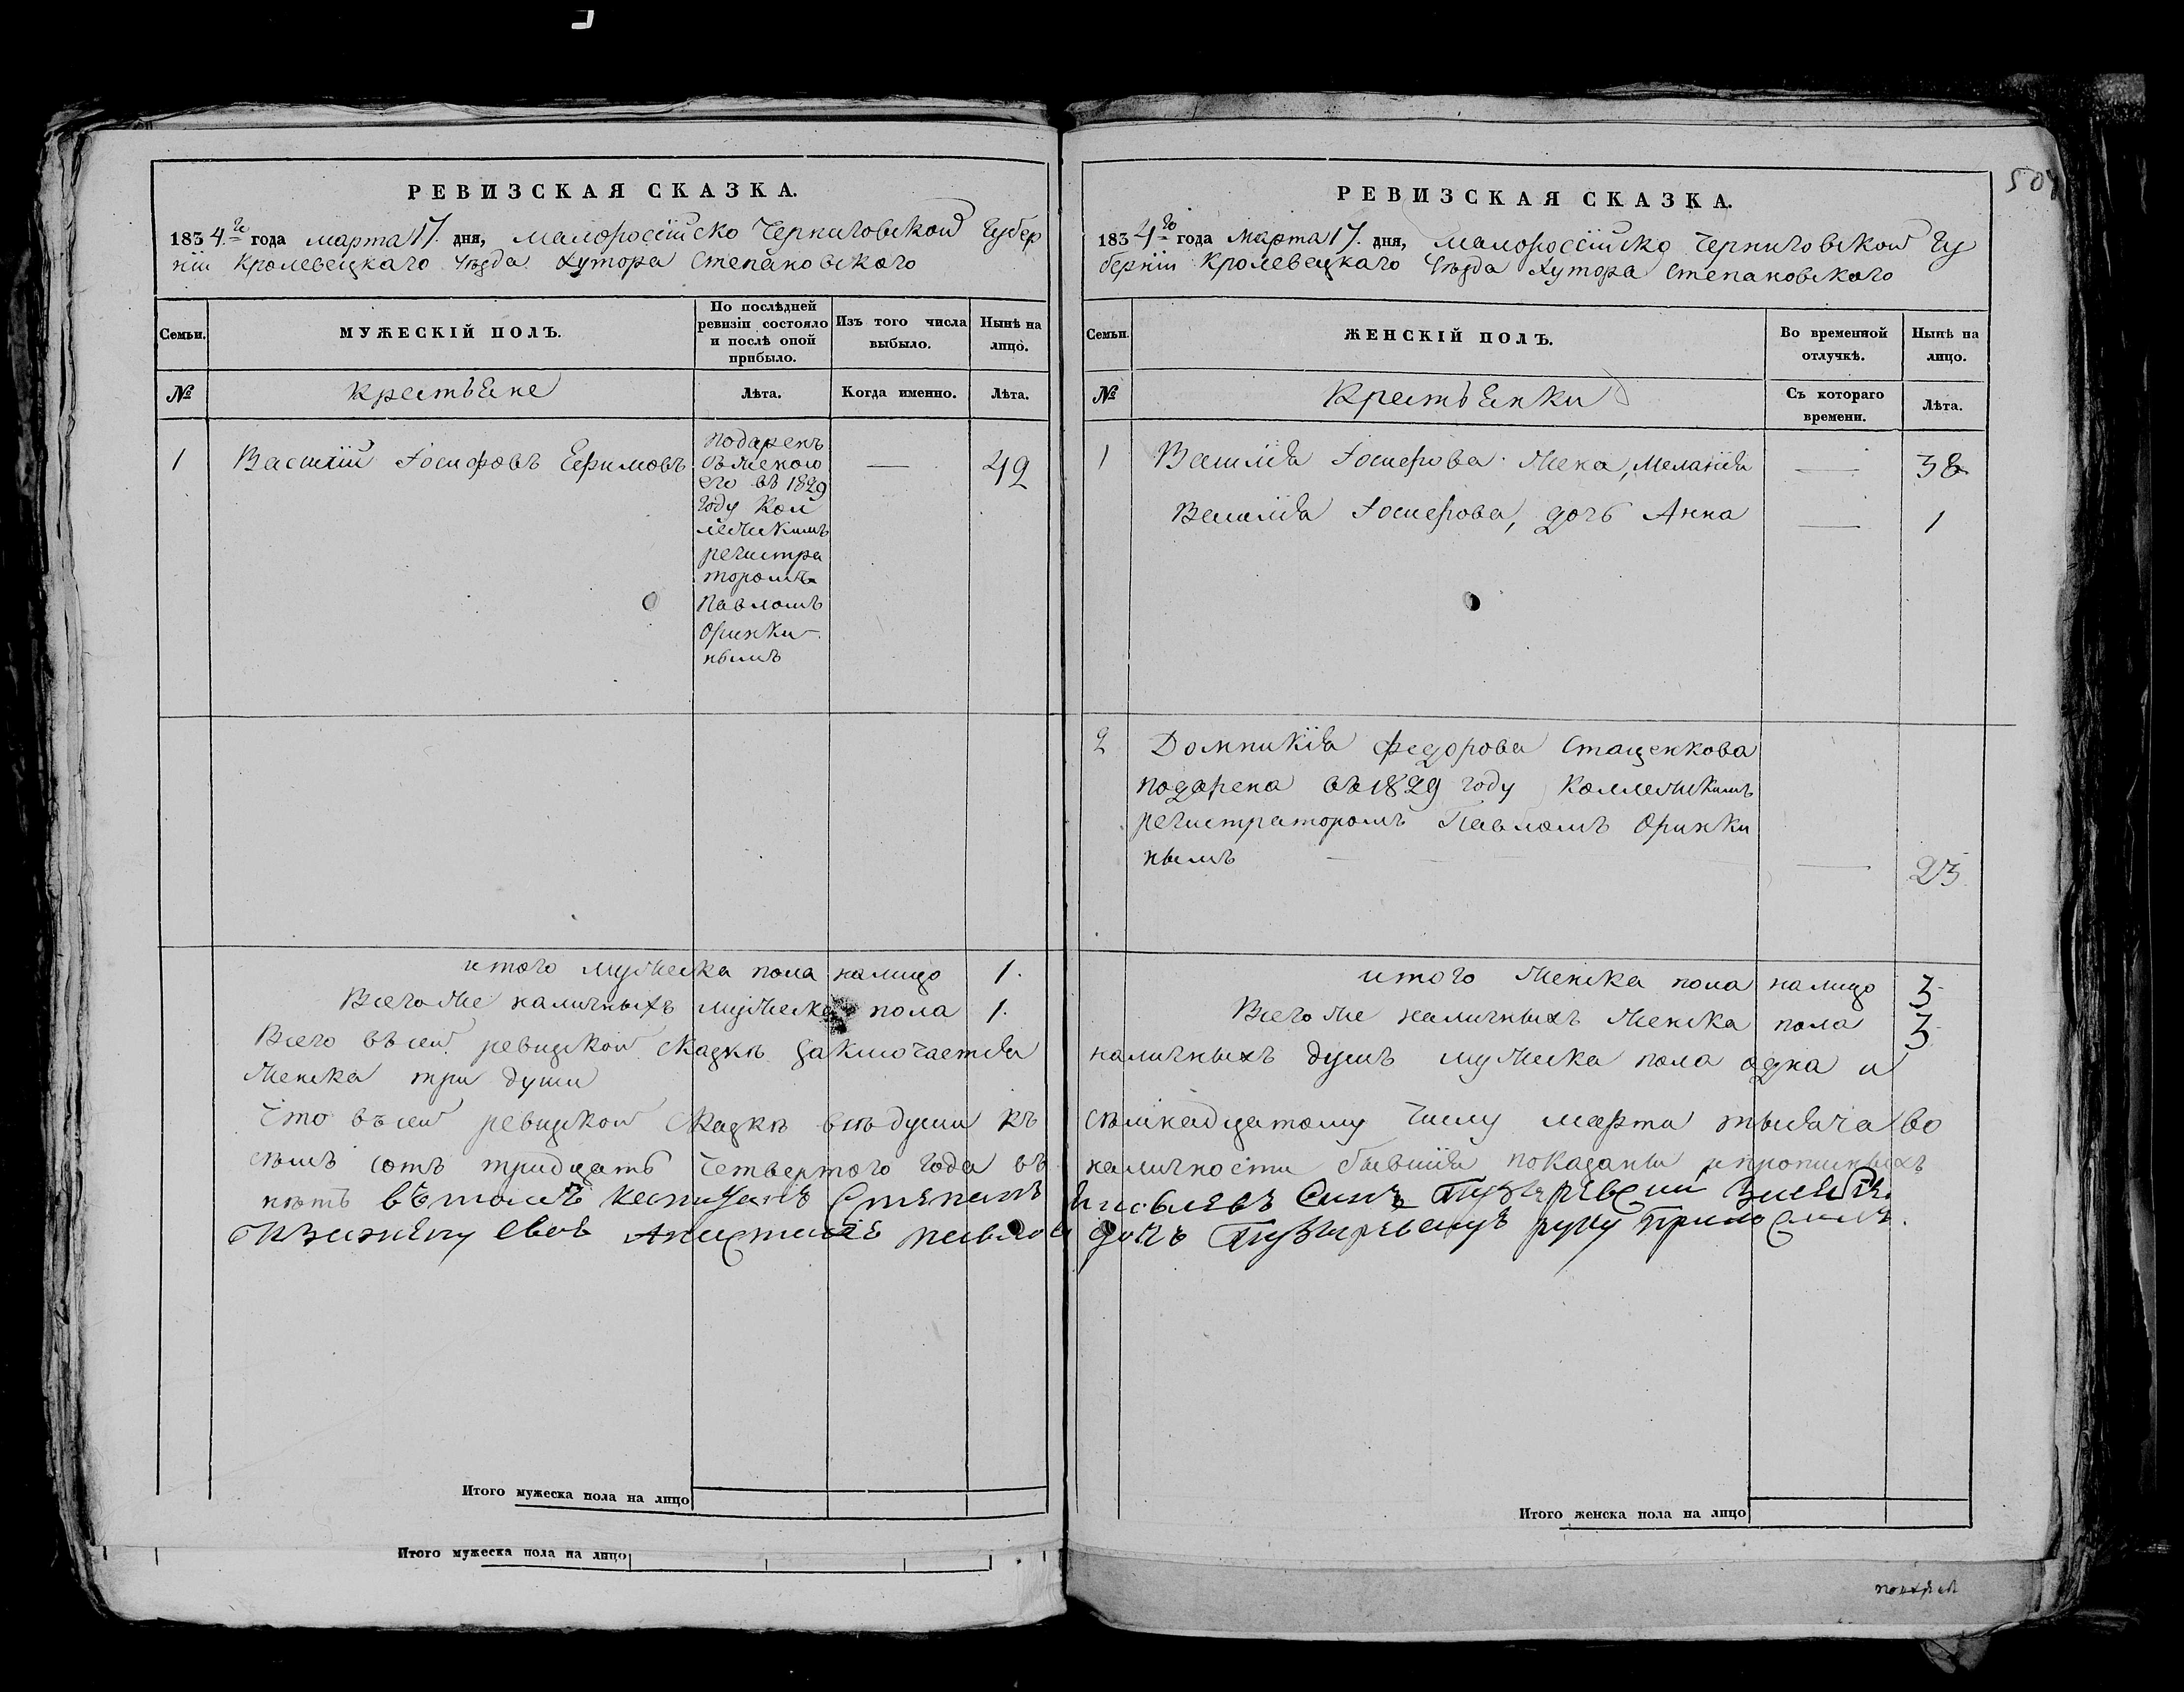 РЕВИЗСКАЯ СКАЗКА.
1834го года марта 17. дня, малороссїйско Черниговской Губер
нїи Кролевецкаго Уѣзда Хутора Степановского
Семьи.
МУЖЕСКІЙ ПОЛЪ.
По послѣдней ревизіи состояло и послѣ оной прибыло.
Изъ того числа выбыло.
Нынѣ на лицо.
№
крестьяне
Лѣта.
Когда именно.
Лѣта.
1 Василїй Іосифовъ Ефимовъ — 49
подаренъ
съ женою
его въ 1829
году Кол
лежскимъ
регистра
торомъ
Павломъ
Оринки
нымъ
итого мужеска пола налицо 1.
Всего же наличныхъ мужеска пола 1.
Всего въ сей ревизкой сказкѣ заключается
женска три души
Что въ сей ревизкой сказкѣ всѣ души къ
семъ сотъ тридцать четвертого года въ
нѣтъ въ томъ
своѣ
Итого мужеска пола на лицо
Итого мужеска пола на лицо
50
РЕВИЗСКАЯ СКАЗКА.
1834го года Марта 17. дня, малороссїйско Черниговской Гу
бернїи Кролевецкаго Уѣзда Хутора Степановского
Семьи.
ЖЕНСКІЙ ПОЛЪ.
Во временной отлучкѣ.
Нынѣ на лицо.
№
Крестьянки
Съ котораго времени.
Лѣта.
1 Василїя Іосифова жена, Меланїя — 38
Василїя Іосифова, дочь Анна — 1
2 Домникїя Федорова Стаценкова
подарена въ 1829 году Коллежскимъ
регистраторомъ Павломъ Оринки
нымъ — 23
итого женска пола налицо 3
Всего же наличныхъ женска пола 3
наличныхъ душъ мужеска пола одна и
семнадцатому числу марта тысяча во
наличности бывшїя показаны и прописныхъ
руку приложилъ.
Итого женска пола на лицо